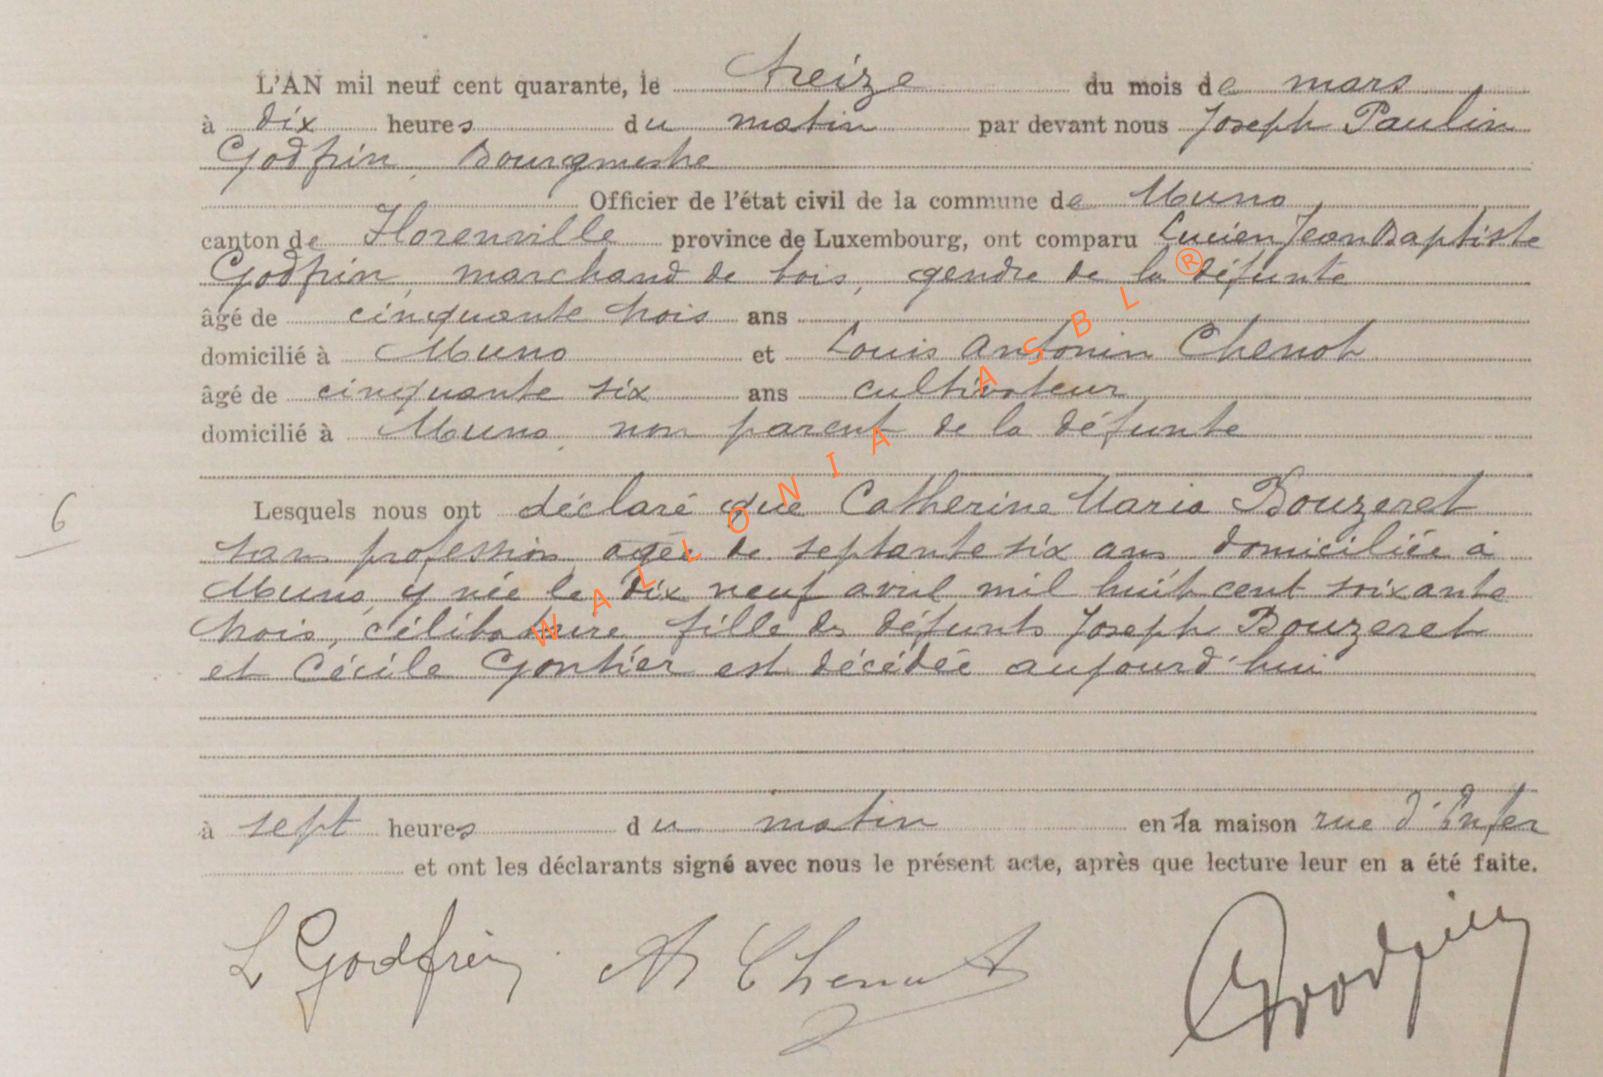 L'AN mil neuf cent quarante, le treize du mois de mars
à dix heures du matin par devant nous Joseph Paulin
Godfrin, Bourgmestre
Officier de l'état civil de la commune de Muno,
canton de Florenville province de Luxembourg, ont comparu Lucien Jean Baptiste
Godfrin, marchand de bois, gendre de la défunte
âgé de cinquante trois ans
domicilié à Muno et Louis Antonin Chenot
âgé de cinquante six ans cultivateur
domicilié à Muno, non parent de la défunte
6
Lesquels nous ont déclaré que Catherine Maria Bouzeret
sans profession agée de septante six ans domiciliée à
Muno, y née le dix neuf avril mil huit cent soixante
trois, célibataire fille des défunts Joseph Bouzeret
et Cécile Gontier est décédée aujourd'hui
à sept heures du matin en la maison rue d'Enfer
et ont les déclarants signé avec nous le présent acte, après que lecture leur en a été faite.
L Godfrin A Chenot Godfrin
WALLONIA ASBL ®